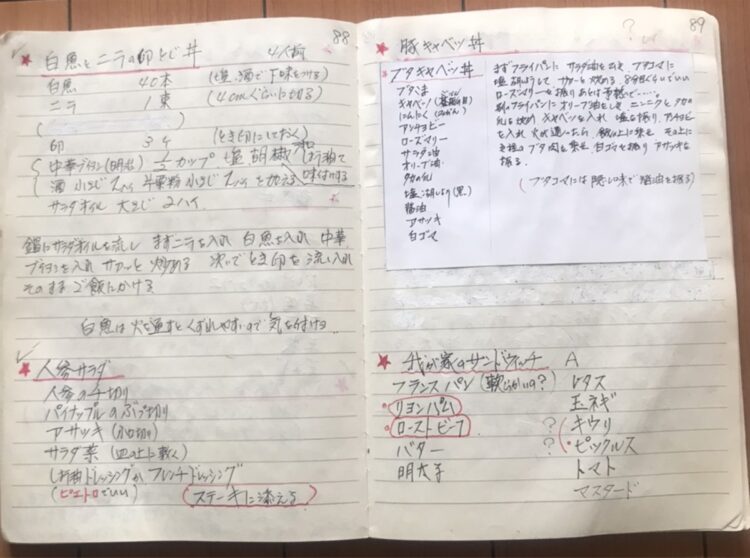 88
白魚とニラの卵とじ丼 4人前
白魚 40本 (塩、酒で下味をつける)
ニラ 1束 (4cmぐらいに切る)
卵 3ケ (とき卵にしておく)
中華ブイヨン(明治) カップ 塩 胡椒
酒 小さじ1ハイ 片栗粉 小さじ1ハイ を加え 味付けする
サラダオイル 大さじ 2ハイ
鍋にサラダオイルを流し まずニラを入れ 白魚を入れ 中華
ブイヨンを入れ サアーッと炒める 次いでとき卵を流し入れ
そのまま ご飯にかける
白魚は火を通すとくずれやすいので 気を付ける
人参サラダ
人参の千切り
パイナップルのぶつ切り
アサツキ (小口切り)
サラダ菜 (皿の上に敷く)
ドレッシングか フレンチドレッシング
(ピエトロでいい) ステーキに添える
89
?
豚キャベツ丼
ブタキャベツ丼
ブタこま
キャベツ
にんにく
アンチョビー
ローズマリー
サラダ油
オリーブ油
タカの爪
塩、胡しょう(黒)
醤油
アサツキ
白ゴマ
まずフライパンに サラダ油をしき ブタコマに
塩 胡しょうして サアーと炒める 8分目ぐらいでいい
ローズマリーを振り あとは予熱で……。
別のフライパンに オリーブ油をしき ニンニクとタカの
爪を炒め キャベツを入れ 塩を振り、アンチョビー
を入れ 火が通ったら 飯の上に乗せ その上に
ブタ肉を乗せ 白ゴマを振り アサツキを
振る.
(ブタコマには 隠し味で醤油を振る)
我が家のサンドウィッチ A
フランスパン (軟らかいの?) レタス
リヨンハム 玉ネギ
ローストビーフ ? キウリ
バター ? ピックルス
明太子 トマト
マスタード